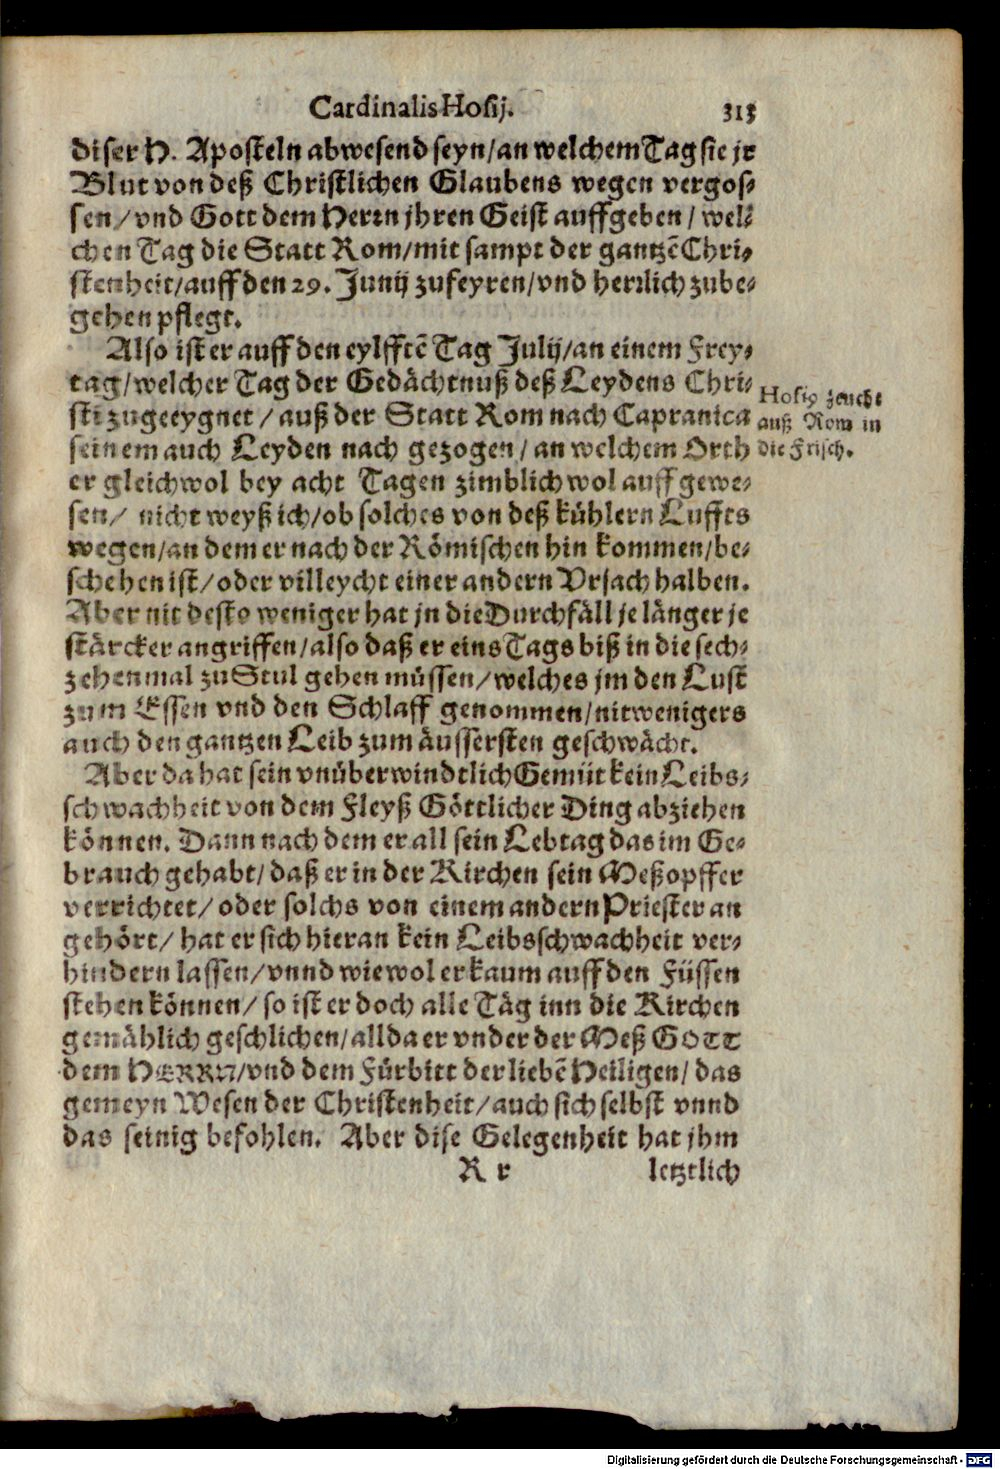 Cardinalis Hosij. 313
diser H. Aposteln abwesend seyn/an welchem Tag sie jr
Blut von deß Christlichen Glaubens wegen vergos-
sen/vnd Gott dem Herrn jhren Geist auffgeben/wel-
chen Tag die Statt Rom/mit sampt der gantzē Chri-
stenheit/auff den 29. Junij zufeyren/vnd herrlich zube-
gehen pflegt.
Also ist er auff den eylfftē Tag Julij/an einem Frey-
tag/welcher Tag der Gedächtnuß deß Leydens Chri-
sti zugeeygnet/auß der Statt Rom nach Capranica
seinem auch Leyden nach gezogen/an welchem Orth
er gleichwol bey acht Tagen zimblich wol auff gewe-
sen/nicht weyß ich/ob solches von deß kühlern Luffts
wegen/an dem er nach der Römischen hin kommen/be-
schehen ist/oder villeycht einer andern Vrsach halben.
Aber nit desto weniger hat jn die Durchfäll je länger je
stärcker angriffen/also daß er eins Tags biß in die sech-
zehenmal zu Stul gehen müssen/welches jm den Lust
zum Essen vnd den Schlaff genommen/nitwenigers
auch den gantzen Leib zum äussersten geschwächt.
Aber da hat sein vnüberwindtlich Gemüt kein Leibs-
schwachheit von dem Fleyß Göttlicher Ding abziehen
können. Dann nach dem er all sein Lebtag das im Ge-
brauch gehabt/daß er in der Kirchen sein Meßopffer
verrichtet/oder solchs von einem andern Priester an
gehört/hat er sich hieran kein Leibsschwachheit ver-
hindern lassen/vnnd wiewol er kaum auff den Füssen
stehen können/so ist er doch alle Täg inn die Kirchen
gemählich geschlichen/allda er vnder der Meß GOTT
dem HERRN/vnd dem Fürbitt der liebē Heiligen/das
gemeyn Wesen der Christenheit/auch sich selbst vnnd
das seinig befohlen. Aber dise Gelegenheit hat jhm
R r letztlich
Hosi9 zeucht
auß Rom in
die Frisch.
Digitalisierung gefördert durch die Deutsche Forschungsgemeinschaft - DFG